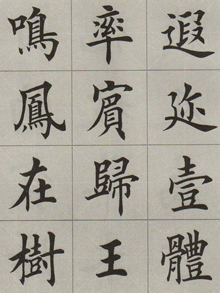 遐迩壹體
率賓歸王
鳴鳳在樹